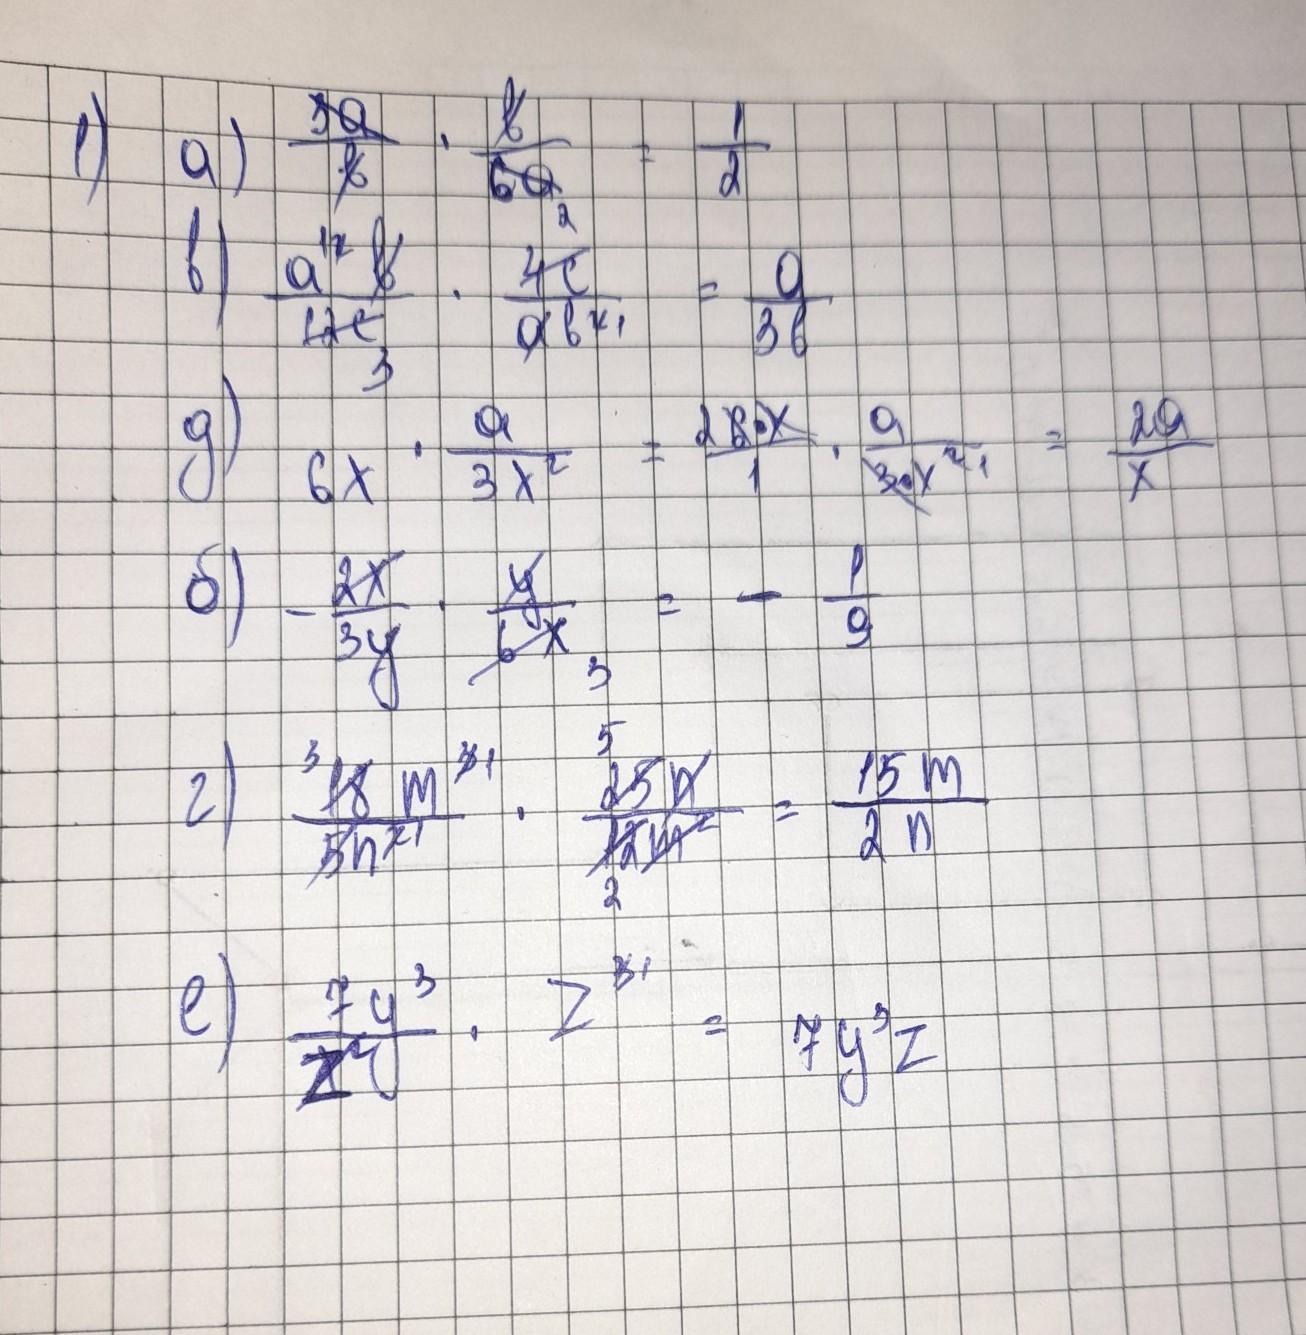 1) а) 3a/b · b/6a 2 = 1/2
в) a² 1 b/12c 3 · 4c/ab² 1 = a/3b
д) 6x · a/3x² = 2 6·x/1 · a/3·x² 1 = 2a/x
б) - 2x/3y · y/6x 3 = - 1/9
г) 3 18 m³ 1/5n² 1 · 5 25n/12m² 2 = 15m/2n
е) 7y³/z²y · z³ 1 = 7y³z